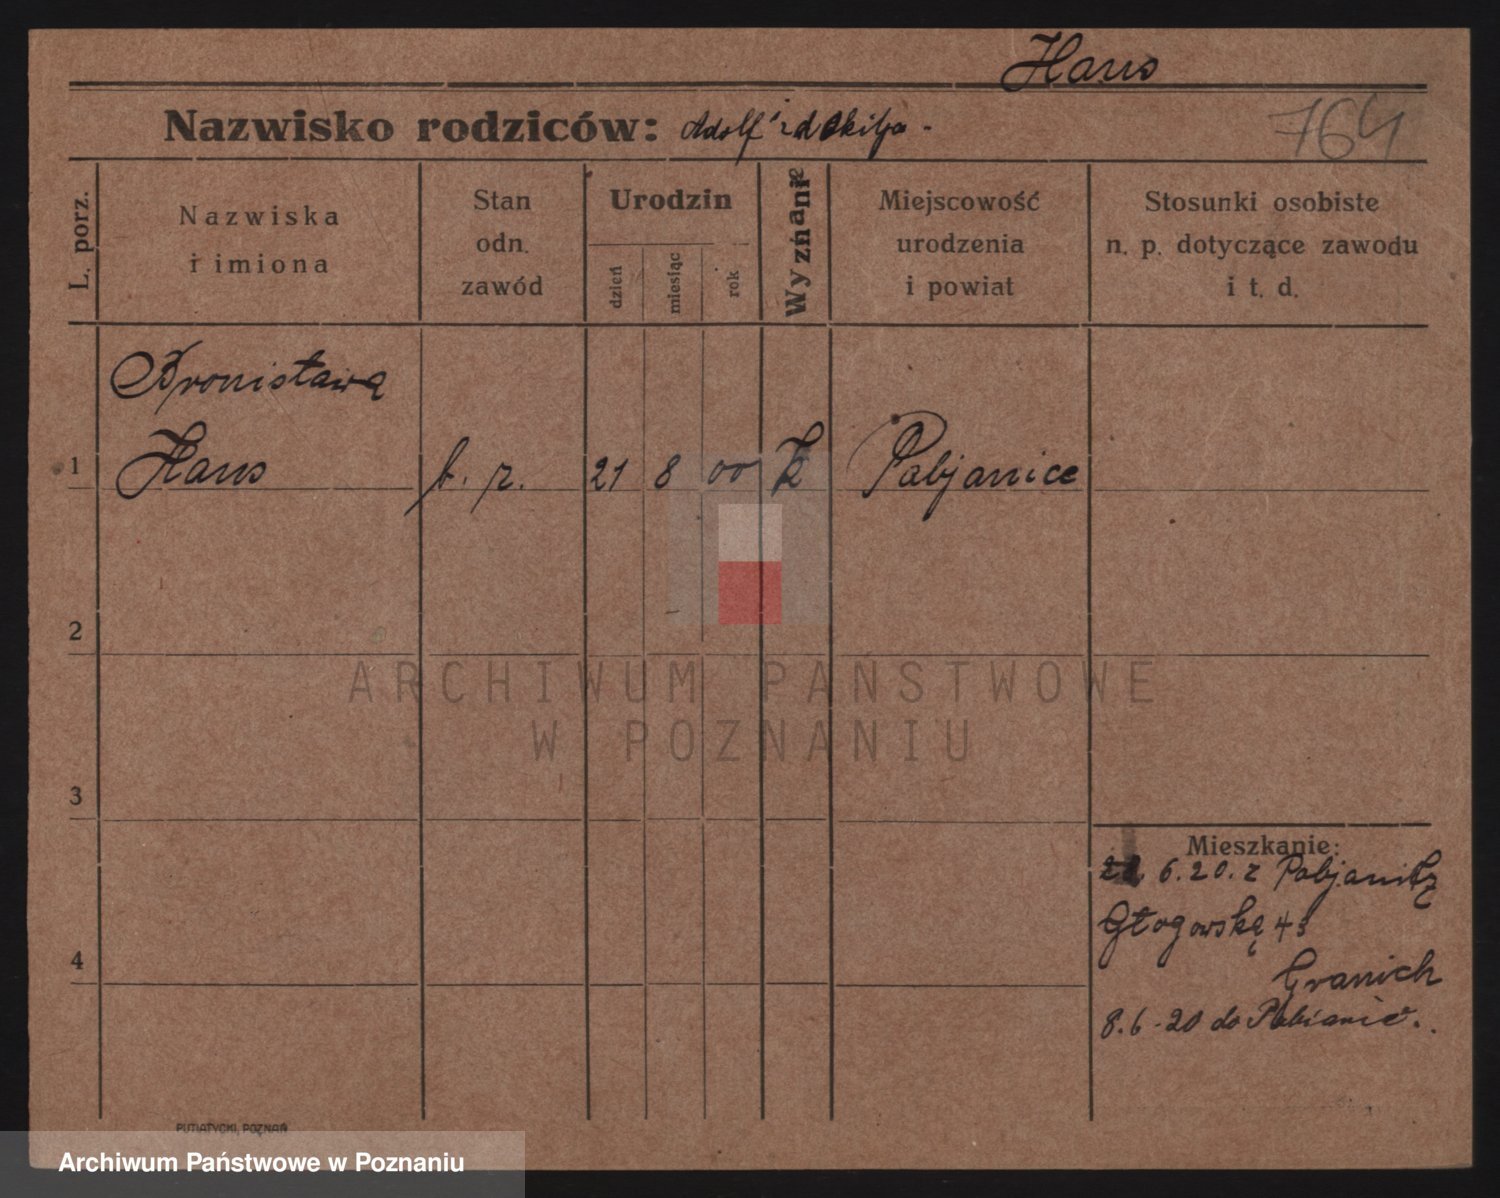 Hans
Nazwisko rodziców: Adolf i
764
L. porz.
Nazwiska
i imiona
Stan
odn.
zawód
Urodzin
dzień
miesiąc
rok
Wyznanie
Miejscowość
urodzenia
i powiat
Stosunki osobiste
n. p. dotyczące zawodu
i t. d.
Bronisława
1 Hans b. r. 21 8 00 k Pabjanice
2
3
4
Mieszkanie:
6.20. z
Głogowska 43
Granich
8.6-20 do
ARCHIWUM PAŃSTWOWE
W POZNANIU
PUTIATYCKI, POZNAŃ
Archiwum Państwowe w Poznaniu